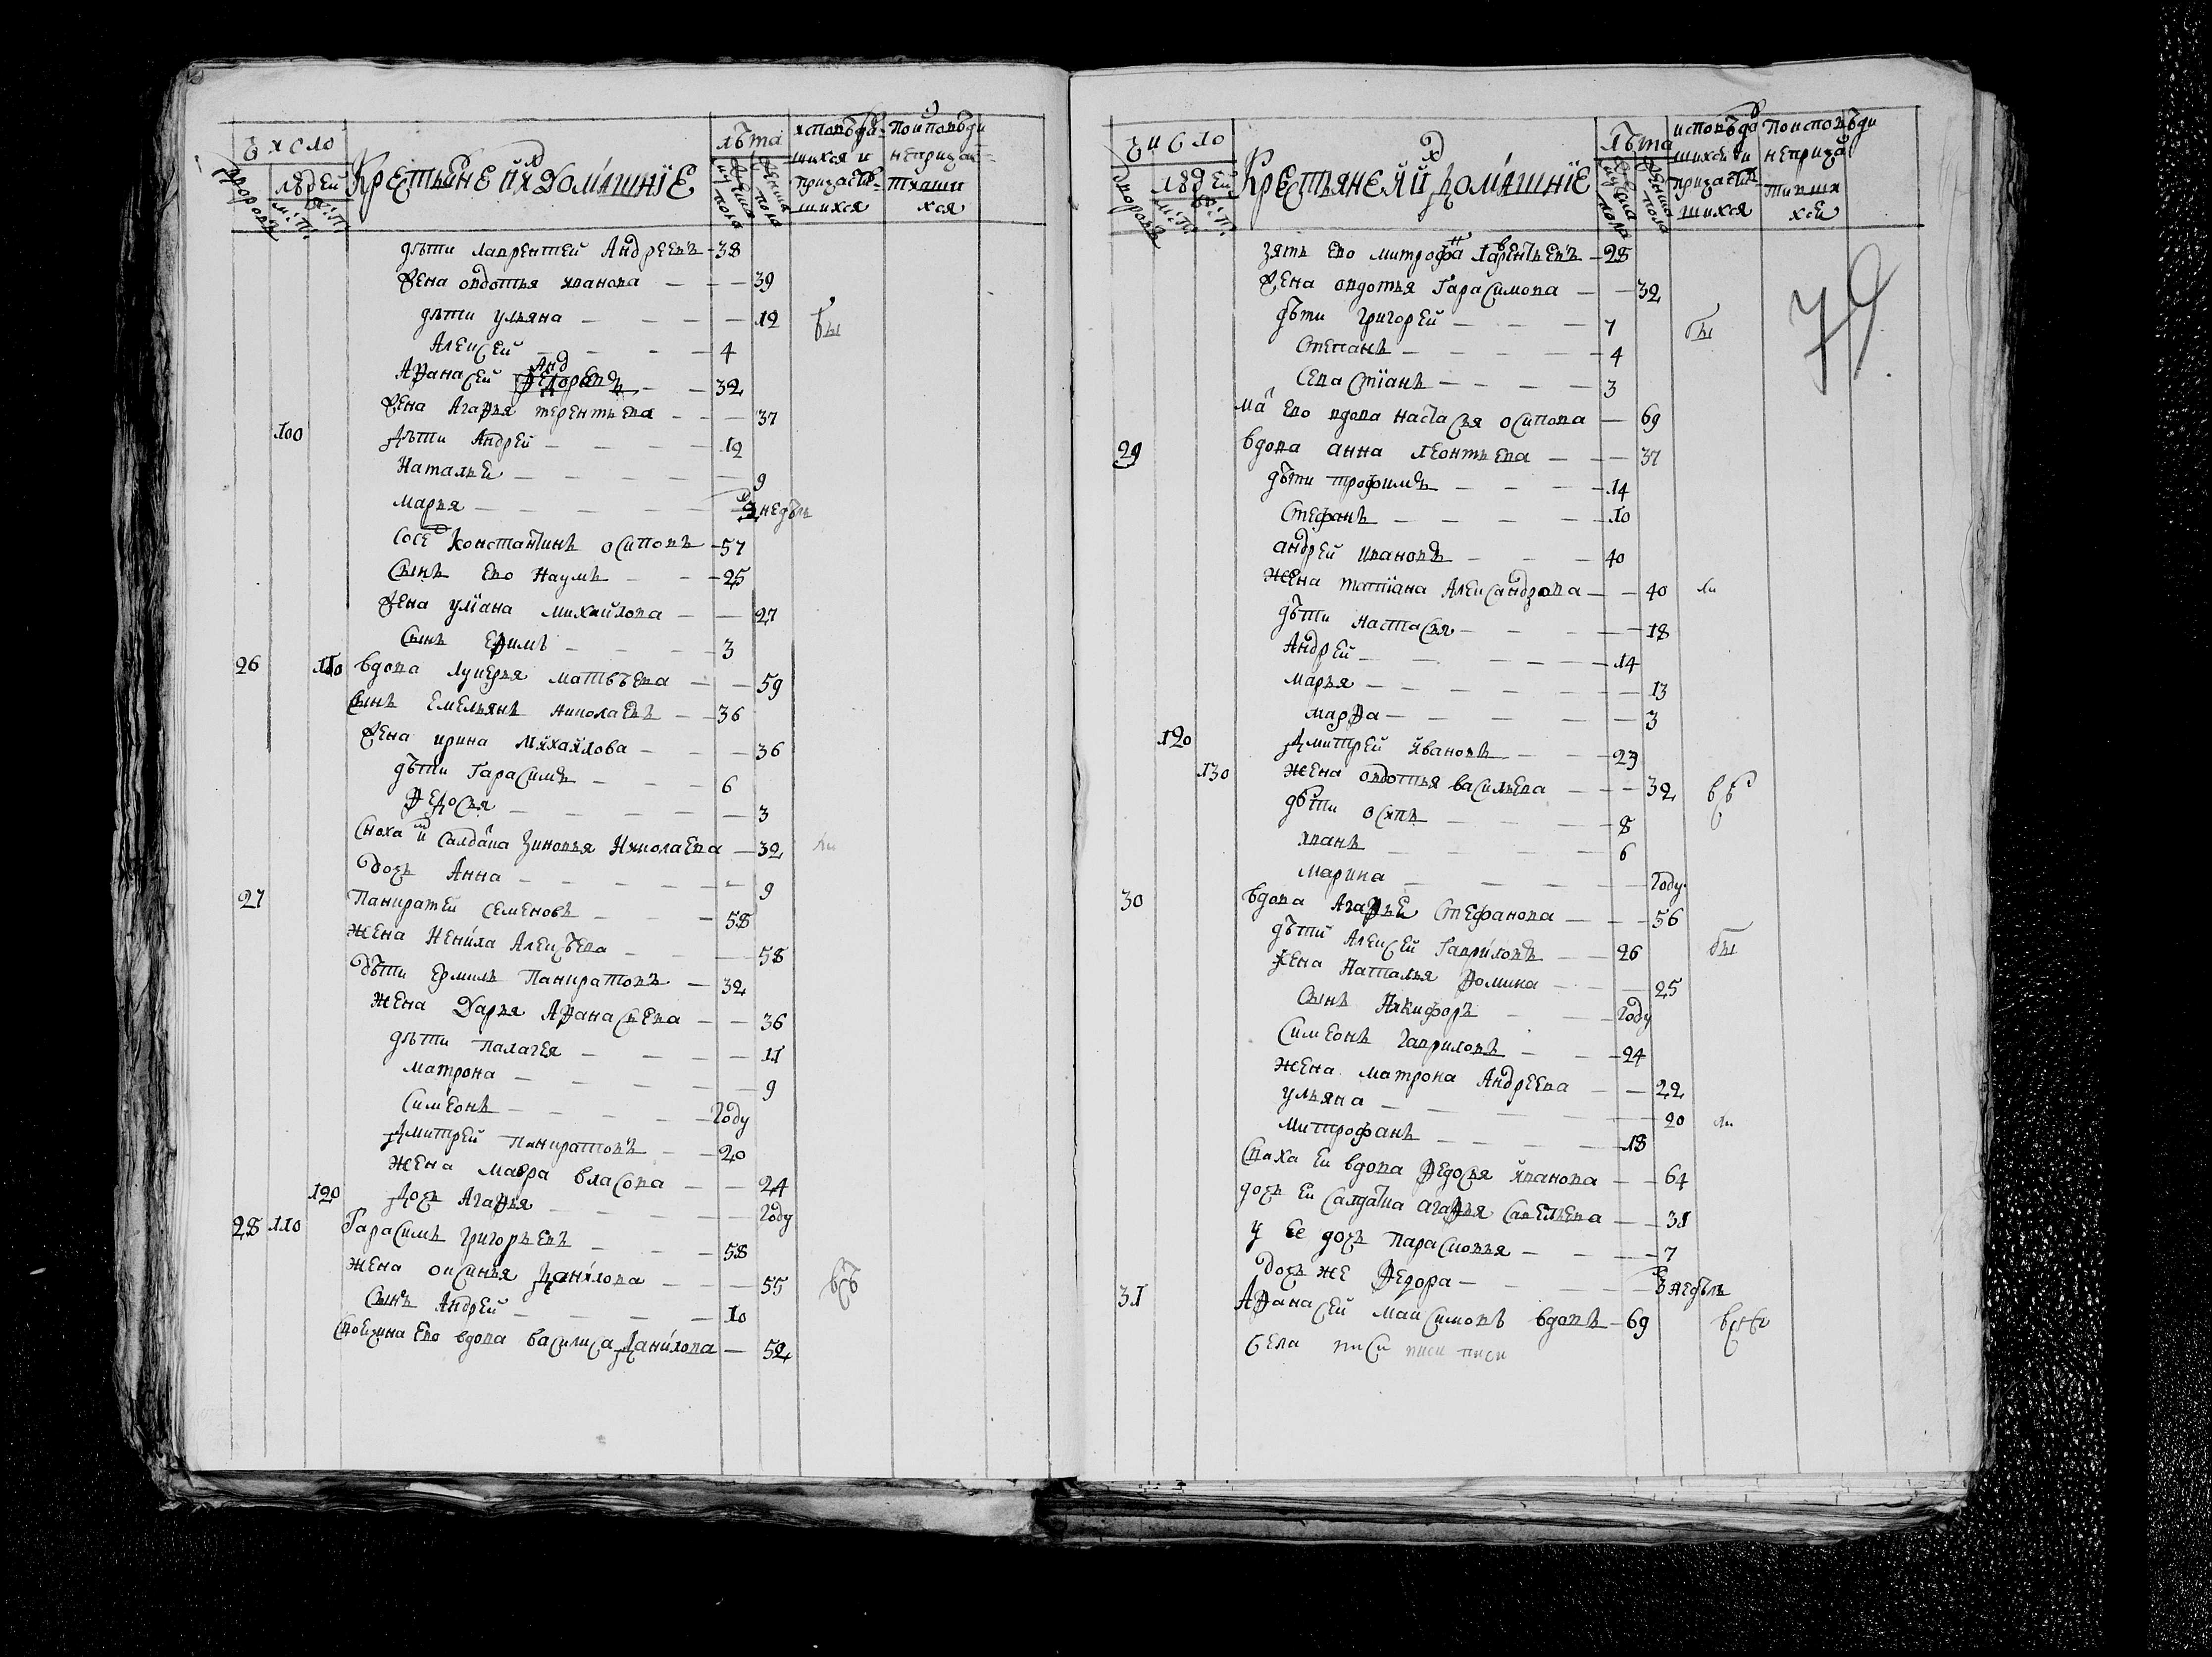 число
людей
дворовъ
м: п:
ж: п:
Крестьяне и ихъ домашніе
лѣта
мужеска пола
женска пола
исповѣдавшихся и причастившихся
по исповѣди непричастившихся
дѣти лаврентей Андреевъ 38
жена овдотья иванова 39
дѣти ульяна 12
Алексей 4
Афанасей Анд 32
жена Агафья терентьева 37
100 дѣти Андрей 12
Наталья 9
марья 3 недѣл
сосед Константинъ осиповъ 57
сынъ ево Наумъ 25
жена улiана михайлова 27
сынъ Ефимъ 3
26 110 вдова лукерья матвѣева 59
сынъ Емельянъ николаевъ 36
жена ирина михайлова 36
дѣти Гарасимъ 6
Федосья 3
сноха и салдатка Зиновья Николаева 32
дочь Анна 9
27 Панкратей семеновъ 58
жена Ненила Алексѣева 58
дѣти ермилъ Панкратовъ 32
жена Дарья Афанасьева 36
дѣти палагея 11
матрона 9
симеонъ году
Дмитрей панкратовъ 20
жена мавра власова 24
120 Дочь Агафья году
28 110 Гарасимъ григорьевъ 58
жена оксинья Данилова 55
сынъ Андрей 10
своячина ево вдова василиса Данилова 52
число
людей
дворовъ
м: п:
ж: п:
Крестьяне и ихъ домашніе
лѣта
мужеска пола
женска пола
исповѣдавшихся и причастившихся
по исповѣди непричастившихся
79
зять ево митрофан Лаврентьевъ 28
жена овдотья Гарасимова 32
дѣти григорей 7
степанъ 4
севастiанъ 3
мать ево вдова настасья осипова 69
29 вдова анна леонтьева 37
дѣти трофимъ 14
стефанъ 10
андрей ивановъ 40
жена татiана Александрова 40
дѣти настасья 18
Андрей 14
марья 13
марфа 3
120 Дмитрей ивановъ 29
130 жена овдотья васильева 32
дѣти осипъ 8
иванъ 6
марина году
30 вдова Агафья стефанова 56
дѣти Алексей Гавриловъ 26
жена Наталья Фомина 25
сынъ Никифоръ году
симеонъ гавриловъ 24
жена матрона Андреева 22
ульяна 20
митрофанъ 18
сваха ея вдова Федосья иванова 64
дочь ея салдатка агафья савельева 31
у ее дочь парасковья 7
дочь же Федора 3 недѣль
31 Афанасей максимовъ вдовъ 69